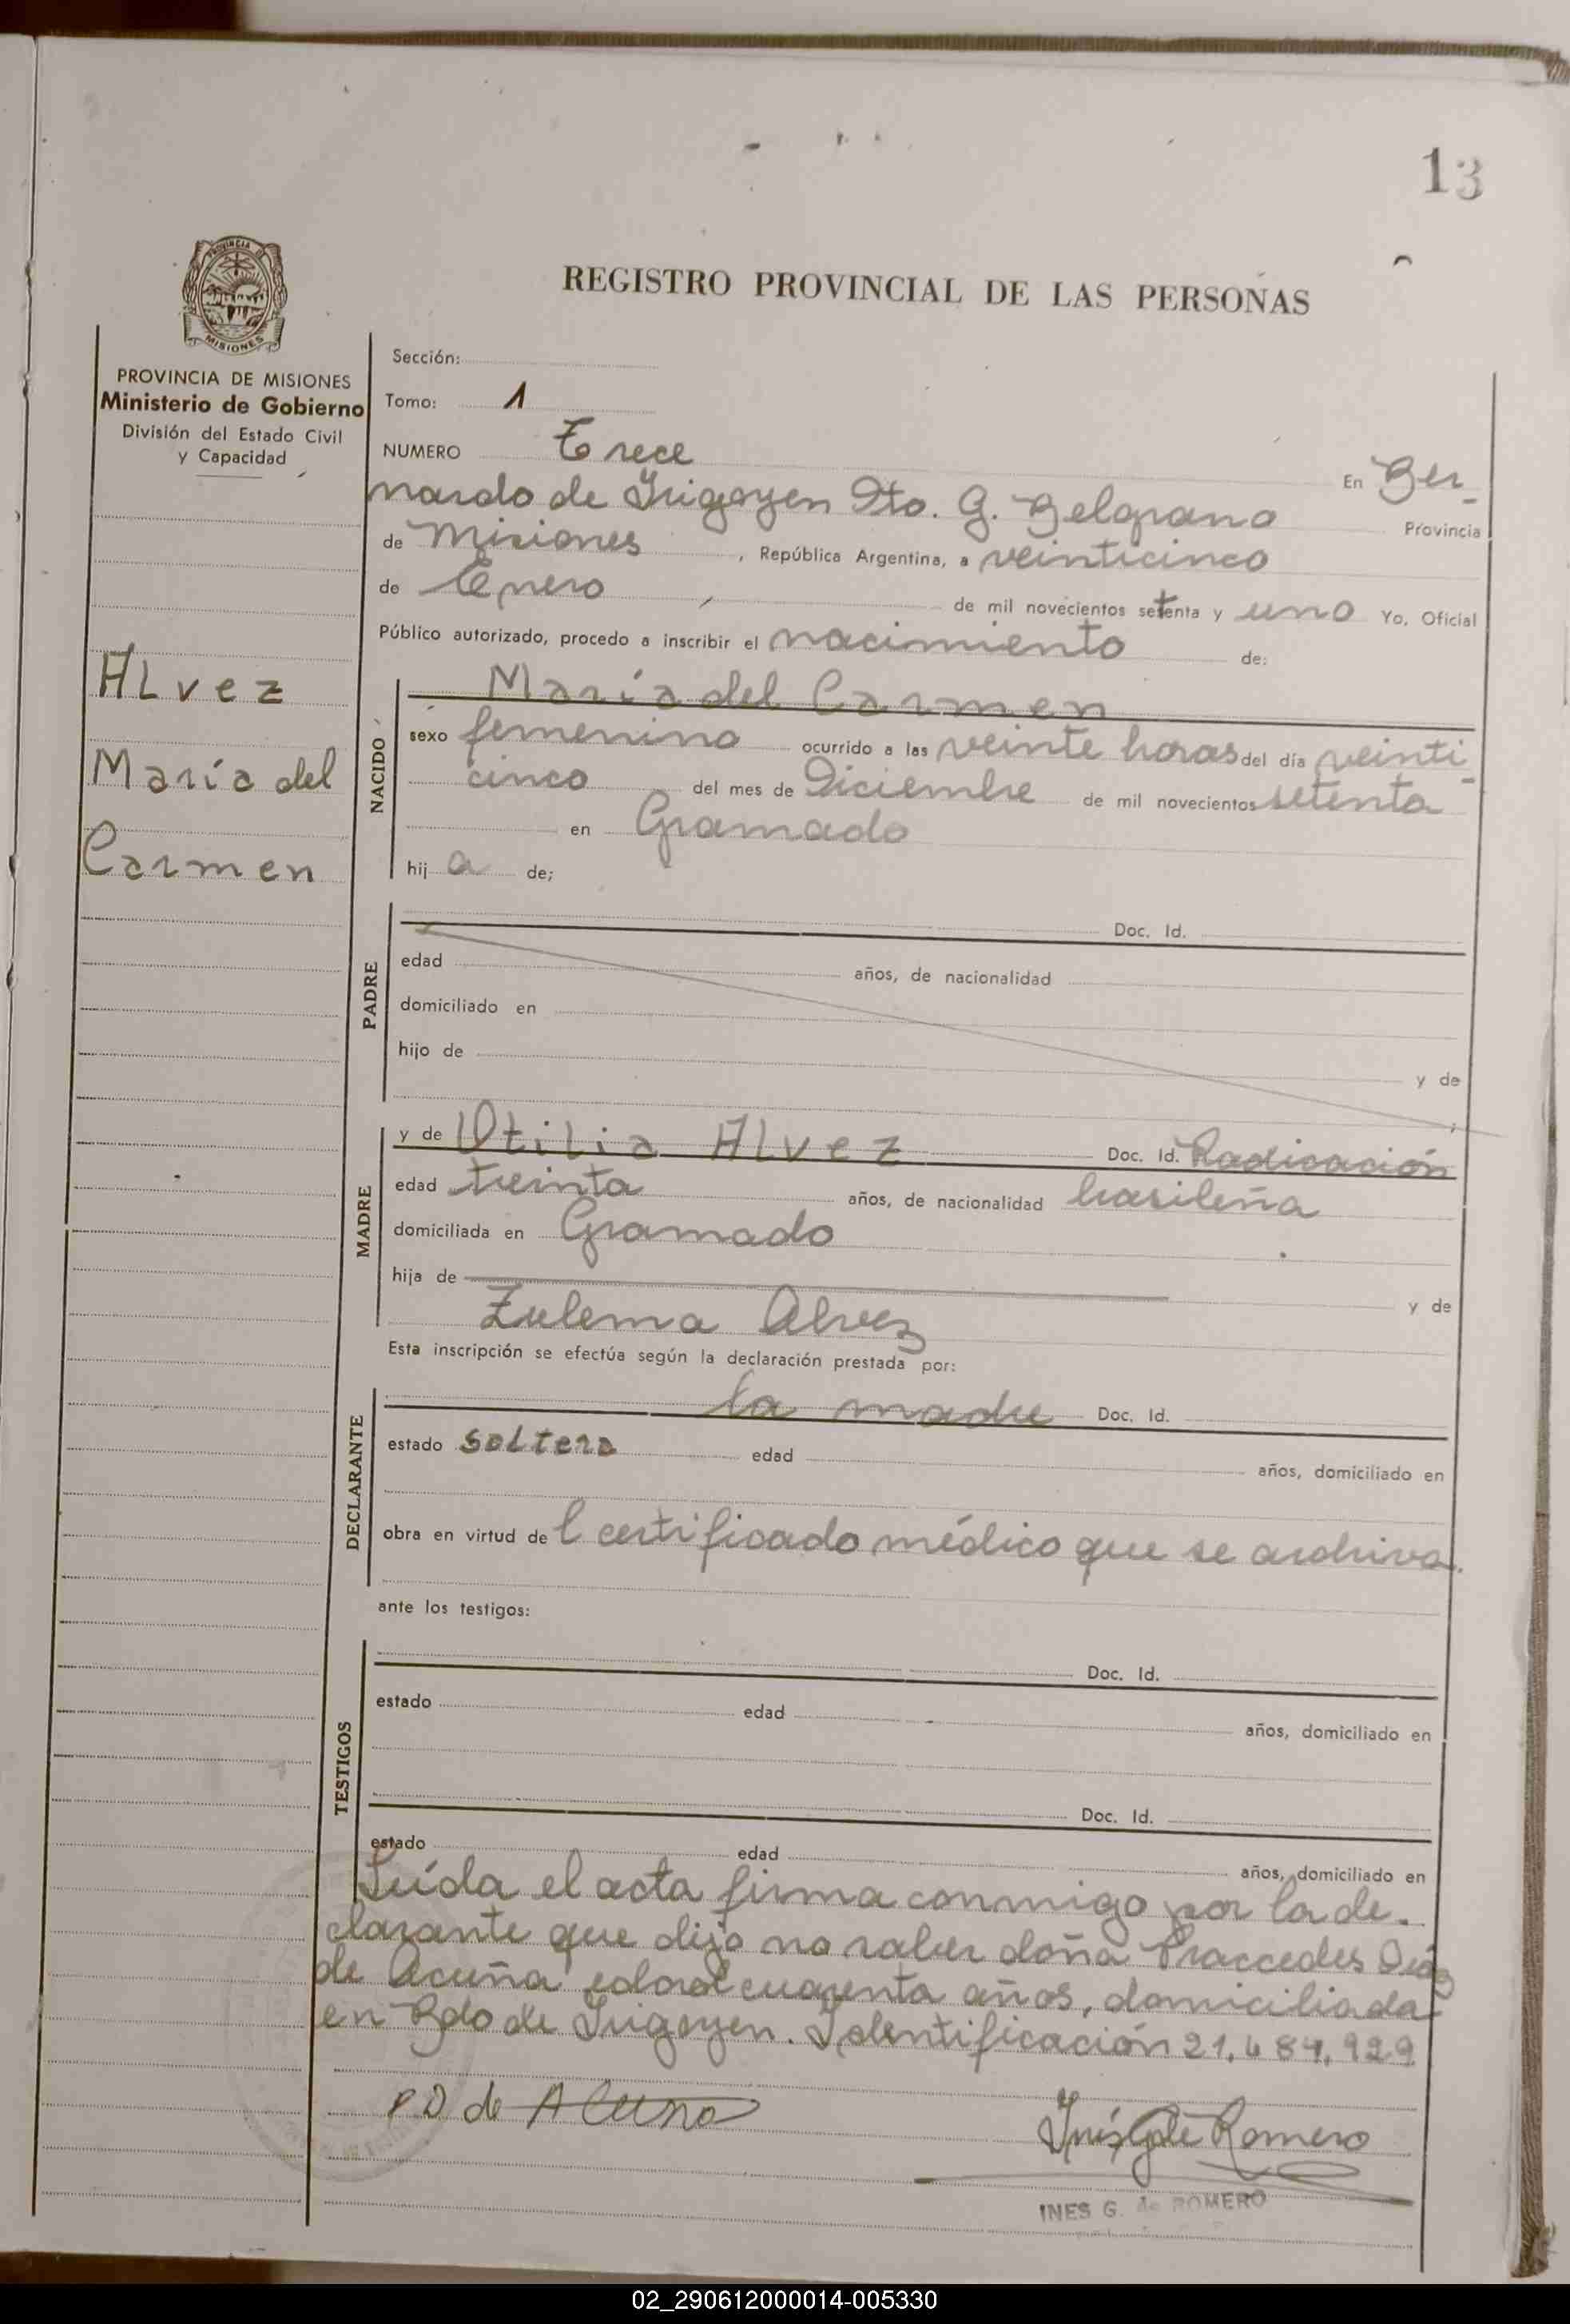 13
PROVINCIA DE
MISIONES
REGISTRO PROVINCIAL DE LAS PERSONAS
PROVINCIA DE MISIONES
Ministerio de Gobierno
División del Estado Civil
y Capacidad
ALvez
María del
Carmen
Sección:
Tomo: 1
NUMERO Trece En Ber-
nardo de Irigoyen Dto. G. Belgrano Provincia
de Misiones, República Argentina, a veinticinco
de Enero de mil novecientos setenta y uno Yo, Oficial
Público autorizado, procedo a inscribir el nacimiento de:
NACIDO
María del Carmen
sexo femenino ocurrido a las veinte horas del día veinti-
cinco del mes de Diciembre de mil novecientos setenta
en Gramado
hija de;
PADRE
Doc. Id.
edad años, de nacionalidad
domiciliado en
hijo de
y de
MADRE
y de Otilia ALvez Doc. Id. Radicación
edad treinta años, de nacionalidad brasileña
domiciliada en Gramado
hija de
y de
Zulema Alvez
Esta inscripción se efectúa según la declaración prestada por:
DECLARANTE
la madre Doc. Id.
estado soltera edad años, domiciliado en
obra en virtud del certificado médico que se archiva.
ante los testigos:
TESTIGOS
Doc. Id.
estado edad años, domiciliado en
Doc. Id.
estado edad años, domiciliado en
Leída el acta firma conmigo por la de-
clarante que dijo no saber doña Praccedes Diáz
de Acuña edad cuarenta años, domiciliada
en Bdo de Irigoyen. Identificación 21.484.929
P D de Acuna
Inés G de Romero
INES G. de ROMERO
02_290612000014-005330